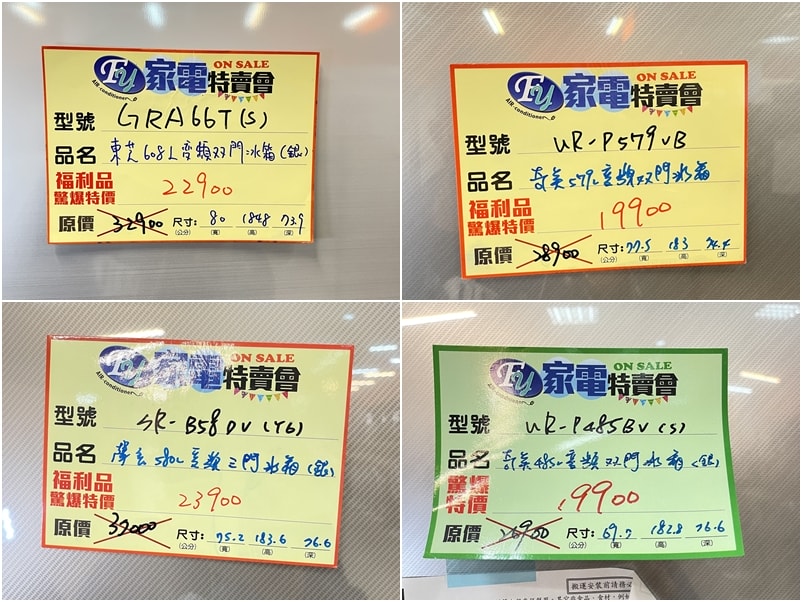 FU 家電特賣會 ON SALE
AIR conditioner
型號 GRA66T(S)
品名 東芝608L變頻双門冰箱(銀)
福利品
驚爆特價 22900
原價 32900 尺寸: 80 184.8 73.9
(公分) (寬) (高) (深)
FU 家電特賣會 ON SALE
AIR conditioner
型號 UR-P579VB
品名 奇美579L變頻双門冰箱
福利品
驚爆特價 19900
原價 28900 尺寸: 77.5 183 74.4
(公分) (寬) (高) (深)
FU 家電特賣會 ON SALE
AIR conditioner
型號 SR-B58DV(Y6)
品名 聲寶580L變頻三門冰箱(銀)
福利品
驚爆特價 23900
原價 39000 尺寸: 75.2 183.6 76.6
(公分) (寬) (高) (深)
FU 家電特賣會 ON SALE
AIR conditioner
型號 UR-P485BV(S)
品名 奇美485L變頻双門冰箱(銀)
驚爆
特價 19900
原價 26900 尺寸: 69.7 182.8 76.6
(公分) (寬) (高) (深)
搬運安裝前請務必